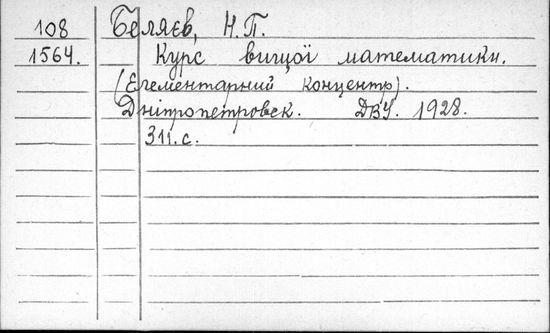 108 Беляєв, Н.П.
1564. Курс вищої математики.
(Елементарний концентр).
Дніпропетровск. ДВУ. 1928.
311.с.